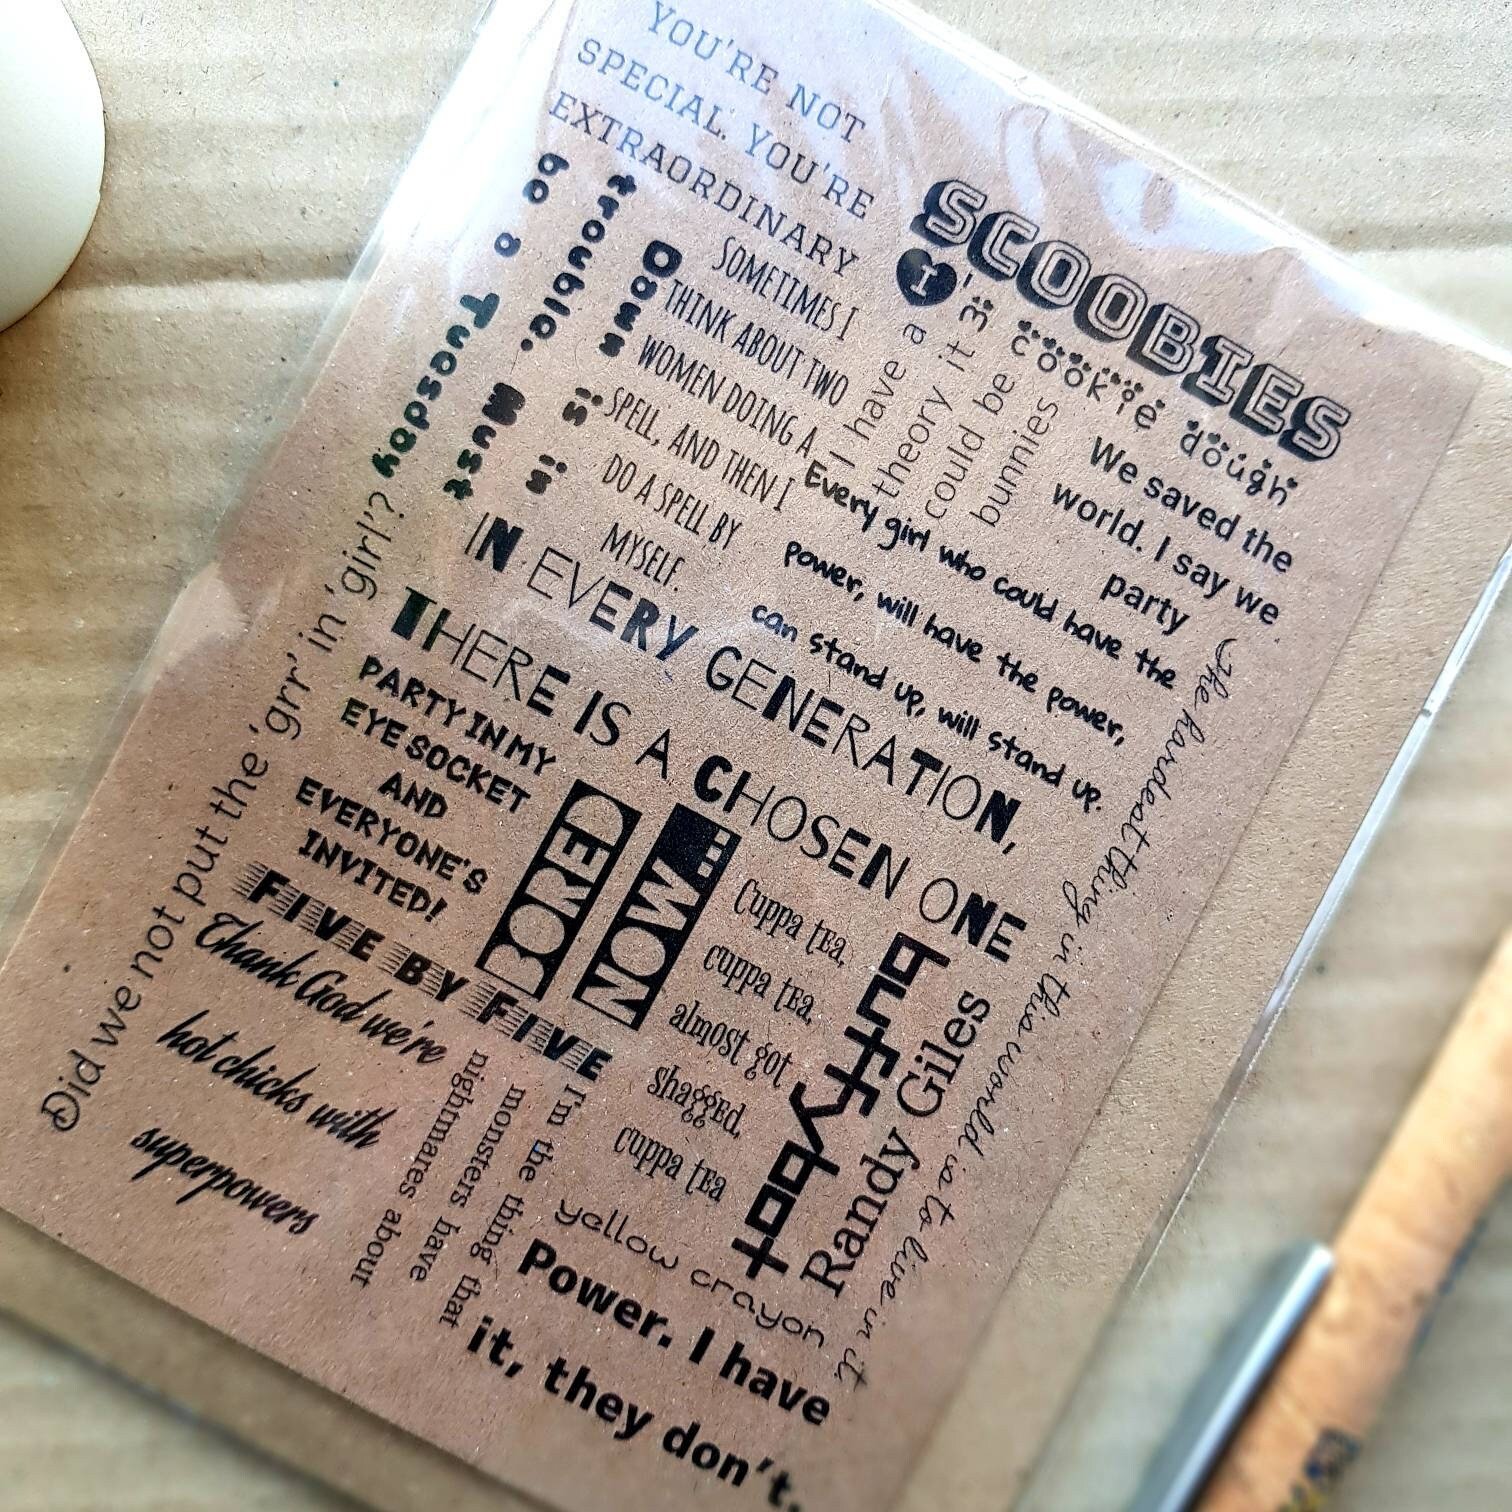 YOU'RE NOT
SPECIAL. YOU'RE
EXTRAORDINARY
SCOOBIES
I
I'm cookie dough
We saved the
world. I say we
party
I have a
theory it
could be
bunnies
SOMETIMES I
THINK ABOUT TWO
WOMEN DOING A
SPELL, AND THEN I
DO A SPELL BY
MYSELF.
Dawn is in
trouble. Must
be a Tuesday
Every girl who could have the
power, will have the power,
can stand up, will stand up.
IN EVERY GENERATION,
THERE IS A CHOSEN ONE
The hardest thing in this world is to live in it
Did we not put the 'grr' in 'girl'?
PARTY IN MY
EYE SOCKET
AND
EVERYONE'S
INVITED!
BORED
NOW...
FIVE BY FIVE
Cuppa tea,
cuppa tea,
almost got
shagged,
cuppa tea
Randy Giles
Thank God we're
hot chicks with
superpowers
I'm the thing that
monsters have
nightmares about
yellow crayon
Power. I have
it, they don't.